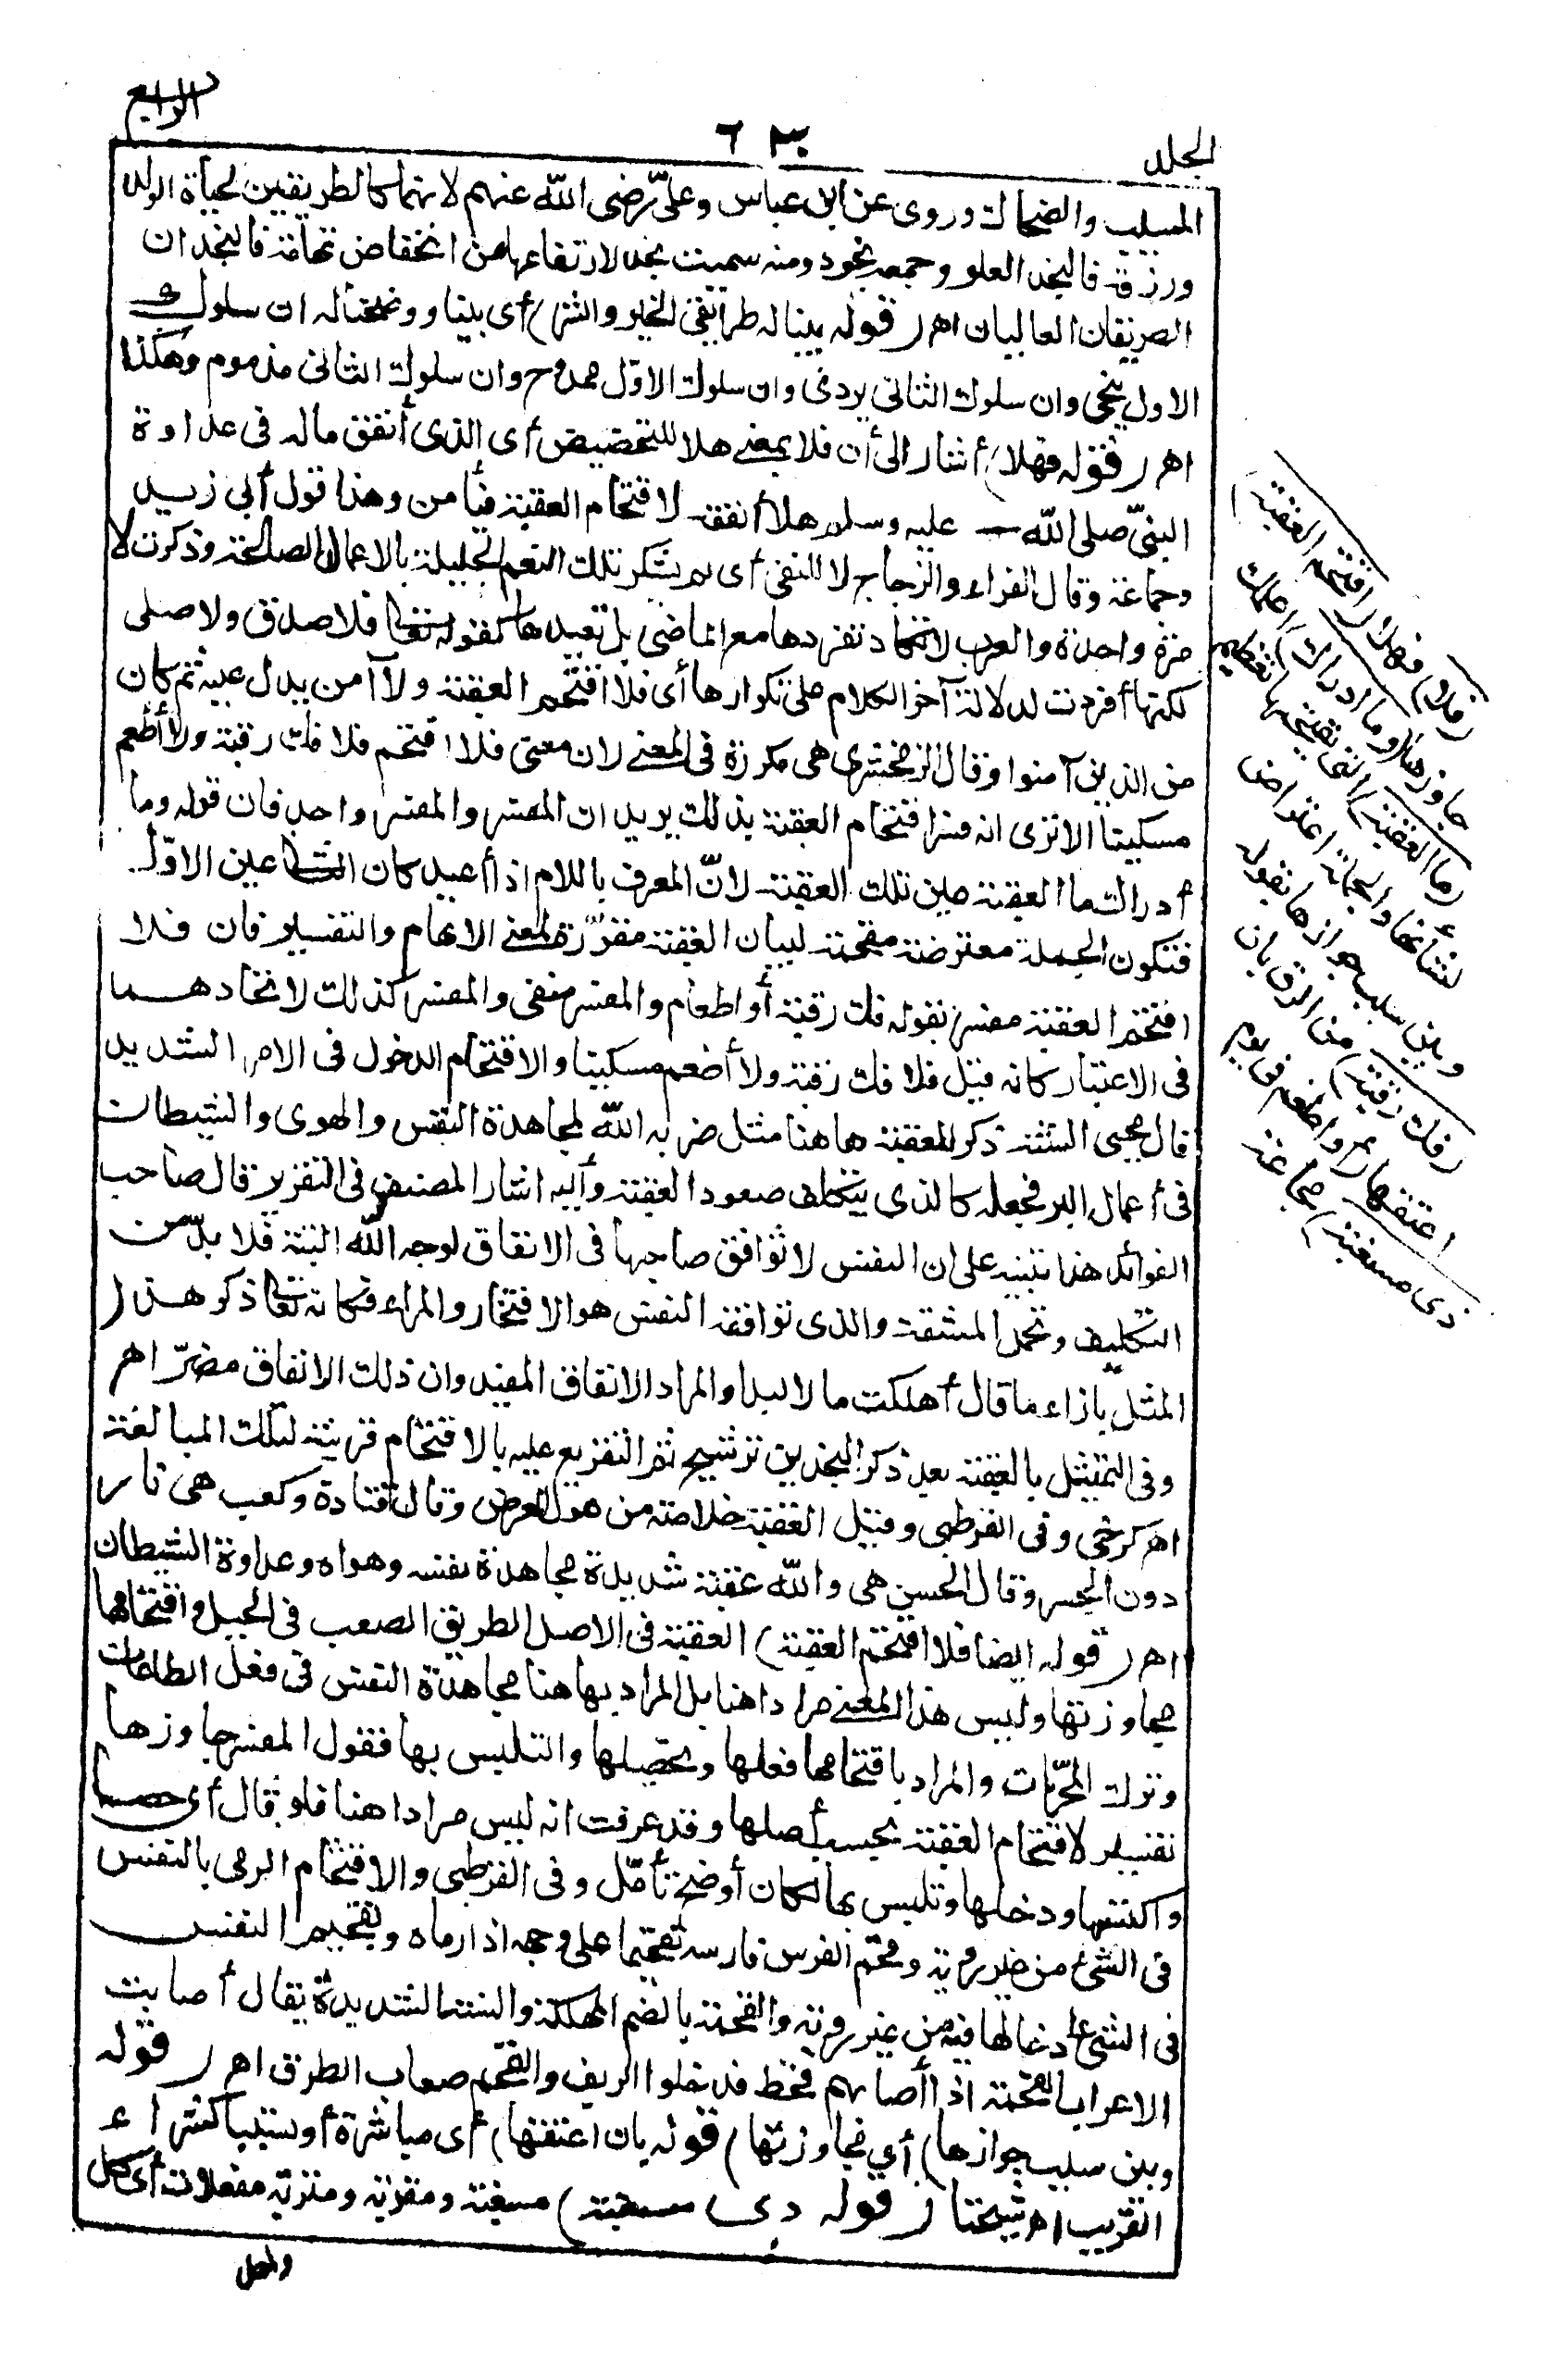 الجلد
٦٣٠
الرابع
المسيب والضحاك وروى عن ابن عباس وعلىّ رضى الله عنهم لانهما كالطريقين لحياة الولد
ورزقه فالنجد العلو وجمعه نجود ومنه سميت نجد لارتفاعها من انخفاض تهامة فالنجدان
الطريقان العاليان اهر (قوله بينا له طريقى الخير والشر) أى بينا ووضحنا له ان سلوك
الاول ينجى وان سلوك الثانى يردى وان سلوك الاوّل ممدوح وان سلوك الثانى مذموم وهكذا
اهر (قوله فهلا) أشار الى أن فلا بمعنى هلا للتحضيض أى الذى أنفق ماله فى عداوة
النبىّ صلى الله عليه وسلم هلا أنفقه لاقتحام العقبة فيأمن وهذا قول أبى زيد
وجماعة وقال الفراء والزجاج لا للنفى أى لم يشكر تلك النعم الجليلة بالاعمال الصالحة وذكرت لا
مرة واحدة والعرب لا تكاد تفردها مع الماضى بل تعيدها كقوله تعالى فلا صدق ولا صلى
لكنها أفردت لدلالة آخر الكلام على تكرارها أى فلا اقتحم العقبة ولا آمن يدل عليه ثم كان
من الذين آمنوا وقال الزمخشرى هى مكررة فى المعنى لان معنى فلا اقتحم فلا فك رقبة ولا أطعم
مسكينا الا ترى انه فسر اقتحام العقبة بذلك يريد ان المفسر والمفسر واحد فان قوله وما
أدراك ما العقبة عين تلك العقبة لانّ المعرف باللام اذا أعيد كان الثانى عين الاوّل
فتكون الجملة معترضة مقحمة لبيان العقبة مقرّرة لمعنى الابهام والتفسير فان فلا
اقتحم العقبة مفسر بقوله فك رقبة أو اطعام والمفسر منفى والمفسر كذلك لاتحادهما
فى الاعتبار كانه قيل فلا فك رقبة ولا أطعم مسكينا والاقتحام الدخول فى الامر الشديد
قال محيى السنة ذكر العقبة هاهنا مثل ضربه الله لمجاهدة النفس والهوى والشيطان
فى أعمال البر فجعله كالذى يتكلف صعود العقبة وأليه اشار المصنف فى التقرير قال صاحب
الفوائد هذا تنبيه على ان النفس لا توافق صاحبها فى الانفاق لوجه الله البتة فلا بدّ من
التكليف وتحمل المشقة والذى توافقه النفس هو الافتخار والمراء فكانه تعالى ذكر هذا
المثل بازاء ما قال أهلكت مالا لبدا والمراد الانفاق المفيد وان ذلك الانفاق مضرّ اهر
وفى التمثيل بالعقبة بعد ذكر النجدين ترشيح ثم التفريع عليه بالاقتحام قرينة لتلك المبالغة
اهر كرخى وفى القرطبى وقيل العقبة خلاصته من هول العرض وقال قتادة وكعب هى نار
دون الجسر وقال الحسن هى والله عقبة شديدة مجاهدة نفسه وهواه وعداوة الشيطان
اهر (قوله ايضا فلا اقتحم العقبة) العقبة فى الاصل الطريق الصعب فى الجبل واقتحامها
مجاوزتها وليس هذا المعنى مرادا هنا بل المراد بها هنا مجاهدة النفس فى فعل الطاعات
وترك المحرّمات والمراد باقتحامها فعلها وتحصيلها والتلبس بها فقول المفسر جاوزها
تفسير لاقتحام العقبة بحسب أصلها وقد عرفت انه ليس مرادا هنا فلو قال أى حصلها
واكتسبها ودخلها وتلبس بها لكان أوضح تأمّل وفى القرطبى والاقتحام الرمى بالنفس
فى الشئ من غير روية وقحم الفرس فارسه تقحيما على وجهه اذا رماه وتقحيم النفس
فى الشئ ادخالها فيه من غير روية والقحمة بالضم المهلكة والسنة الشديدة يقال أصابت
الاعراب القحمة اذا أصابهم قحط فدخلوا الريف والقحم صعاب الطرق اهر (قوله
وبين سبب جوازها) أي مجاوزتها (قوله بان اعتقها) أى مباشرة أو تسببا كشراء
القريب اهر شيخنا (قوله ذى مسغبة) مسغبة ومقربة ومتربة مفعلات أى كل
واحد
(فلا) فهلا (اقتحم العقبة)
جاوزها (وما ادراك) اعلمك
(ما العقبة) التى يقتحمها تعظيم
لشأنها والجملة اعتراض
وبين سبب جوازها بقوله
(فك رقبة) من الرق بان
اعتقها (او اطعم فى يوم
ذى مسغبة) مجاعة